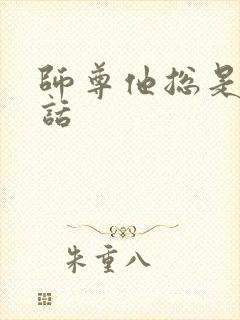 師尊他總是
話
朱重八